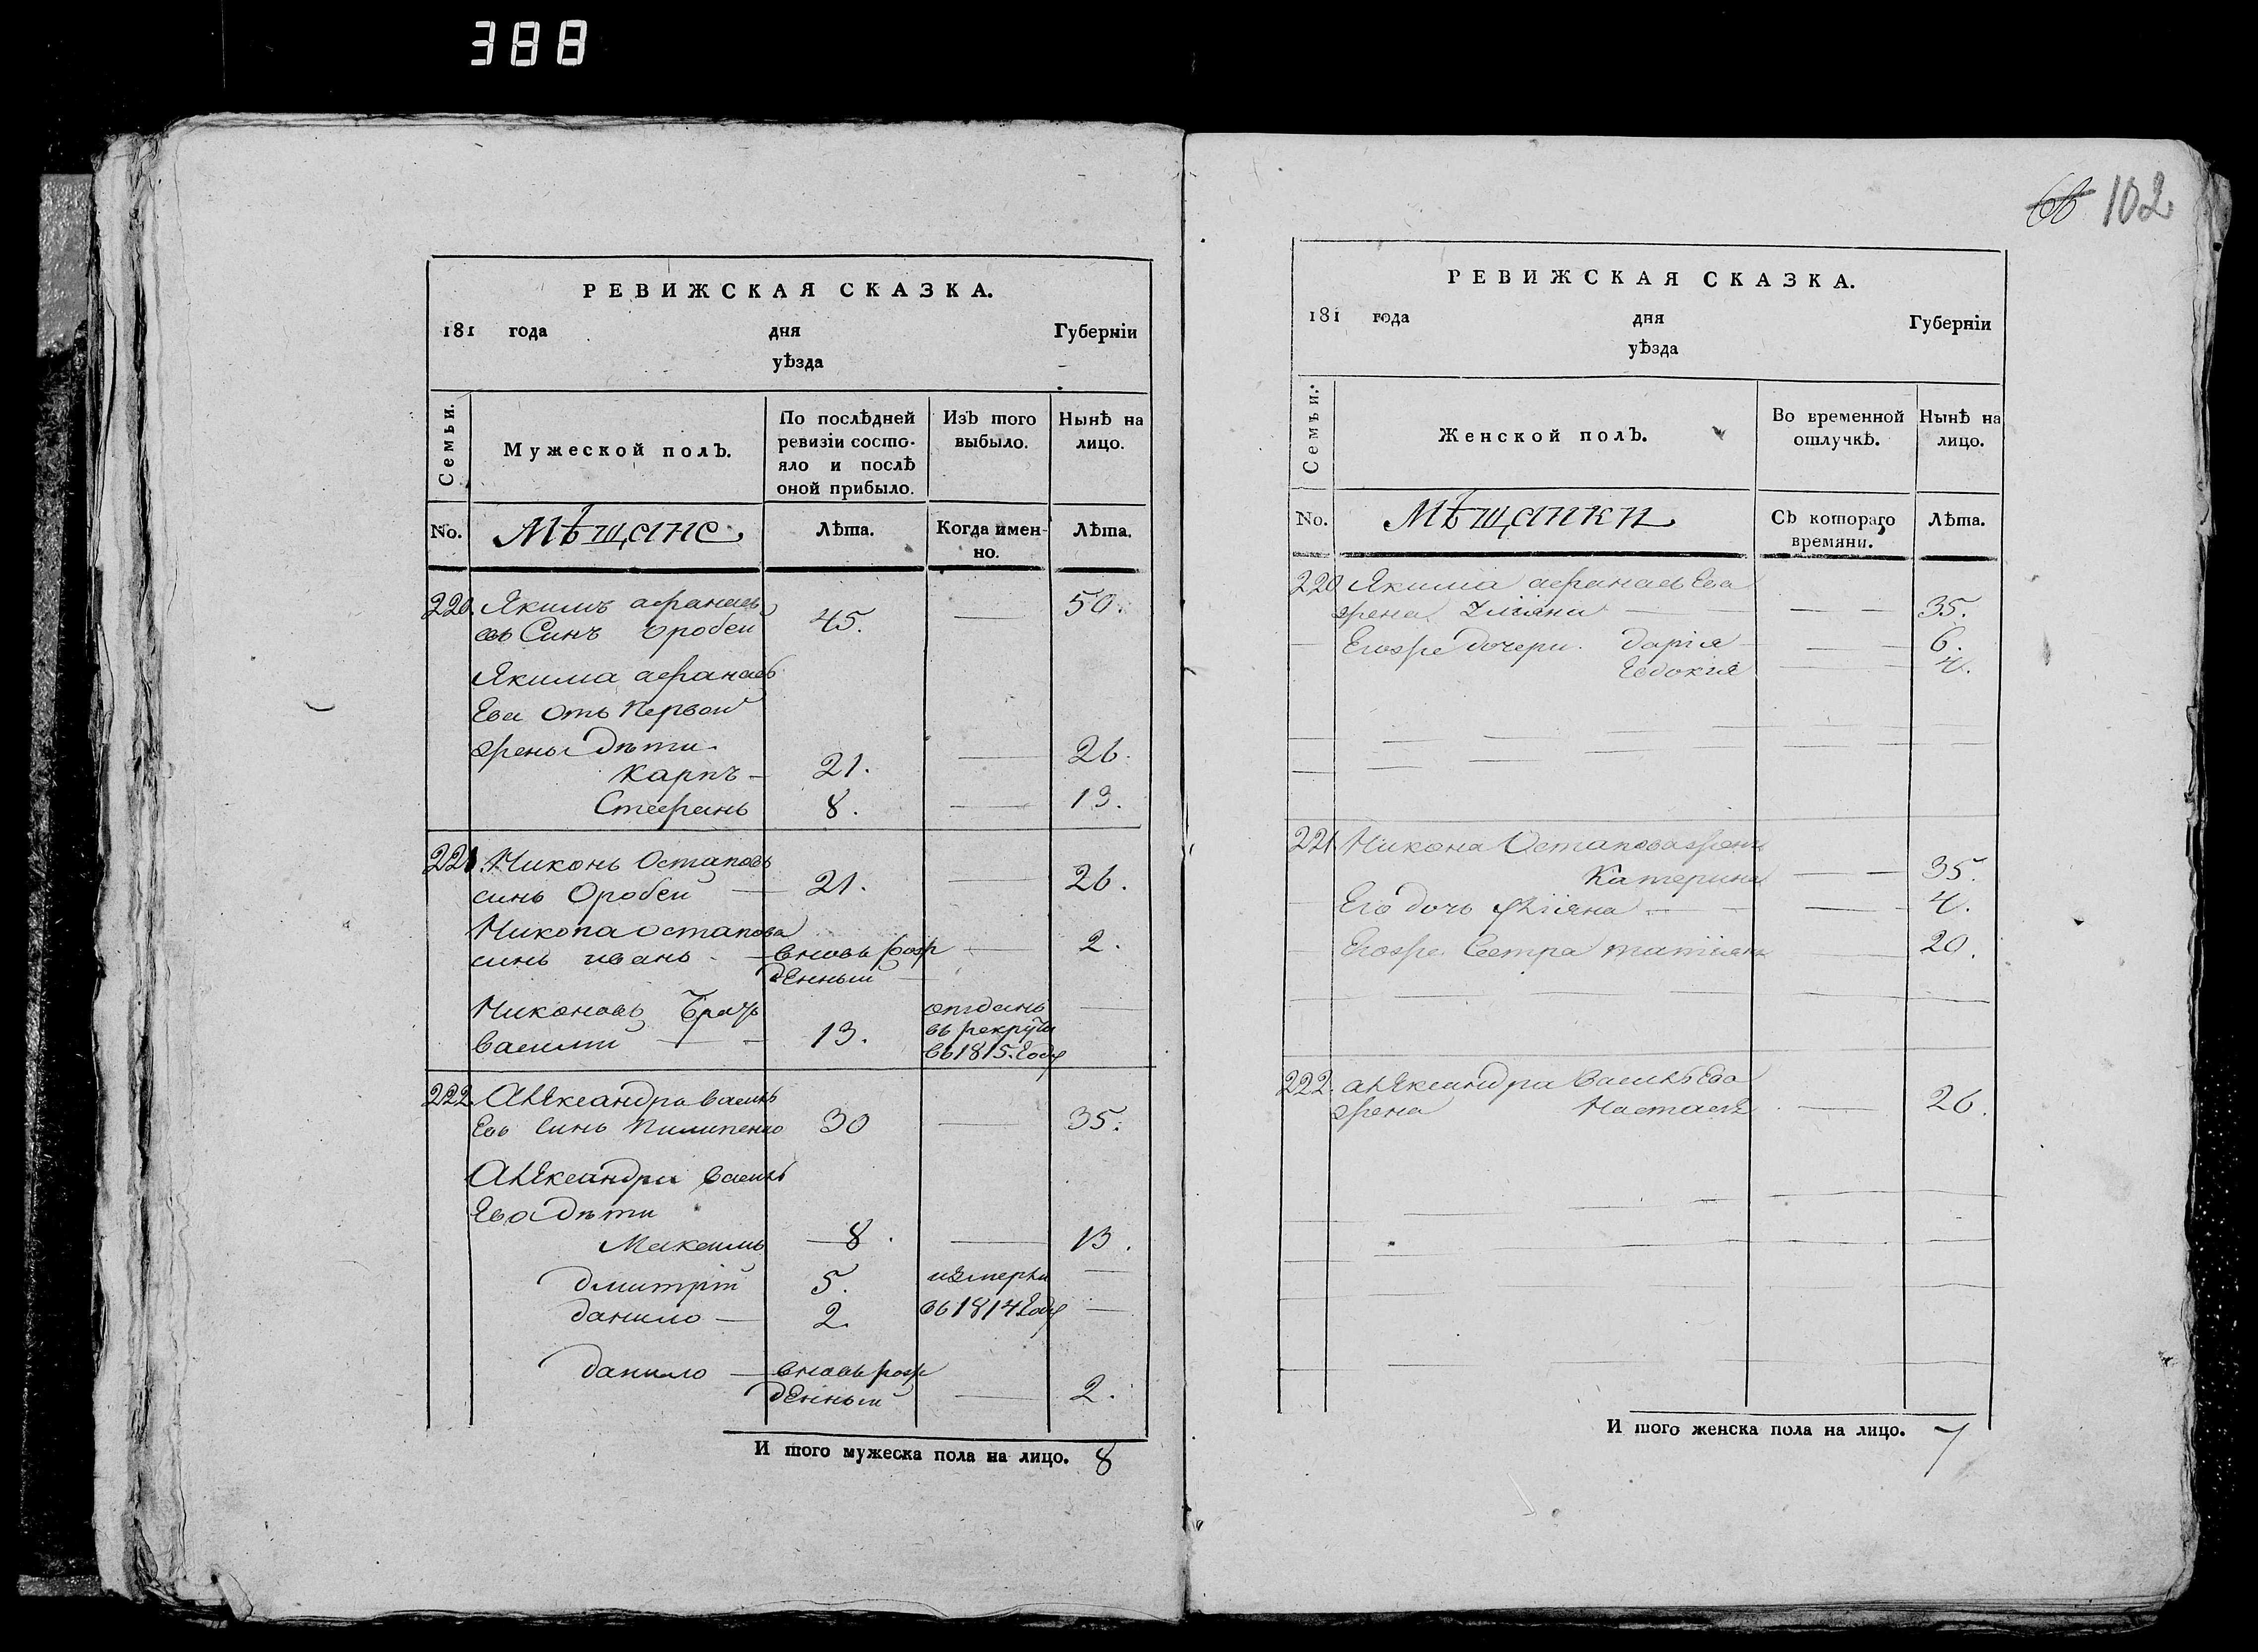 388
РЕВИЖСКАЯ СКАЗКА.
181 года дня Губерніи
уѣзда
Семьи.
Мужеской полъ.
По послѣдней ревизіи состо-
яло и послѣ оной прибыло.
Изъ того выбыло.
Нынѣ на лицо.
No. Мѣщане Лѣта. Когда имен-
но. Лѣта.
220. Якимъ афанаев
въ Синъ оробей 45. — 50.
Якима афанаев
Ева отъ первой
жены дѣти
Карпъ — 21. — 26.
Стефанъ 8. — 13.
221. Никонъ Остаповъ
синъ Оробей — 21. — 26.
Никона остапова
синъ иванъ — вновь рож
денный — 2.
Никоновъ Братъ
Василий — 13. отданъ
въ рекруты
въ 1815. Году —
222. Александра Василь
Евъ Синъ Пилипенко 30 — 35.
Александра василь
Ева дѣти
Максимъ — 8. — 13.
дмитрій 5. измерли —
данило — 2. въ 1814 Году —
данило — вновь рож
денный — 2.
И того мужеска пола на лицо. 8
102
РЕВИЖСКАЯ СКАЗКА.
181 года дня Губерніи
уѣзда
Семьи.
Женской полъ.
Во временной отлучкѣ.
Нынѣ на лицо.
No. Мѣщанки Съ котораго
времяни. Лѣта.
220 Якима афанаев Ева
жена — — 35.
Егоже дочери дарія — — 6.
Евдокия — 4.
221. Никона Остапова жена
Катерина — — 35.
Его дочь — — 4.
Егоже Сестра татияна — 20.
222. александра Василь Ева
жена Настася — 26.
И того женска пола на лицо. 7